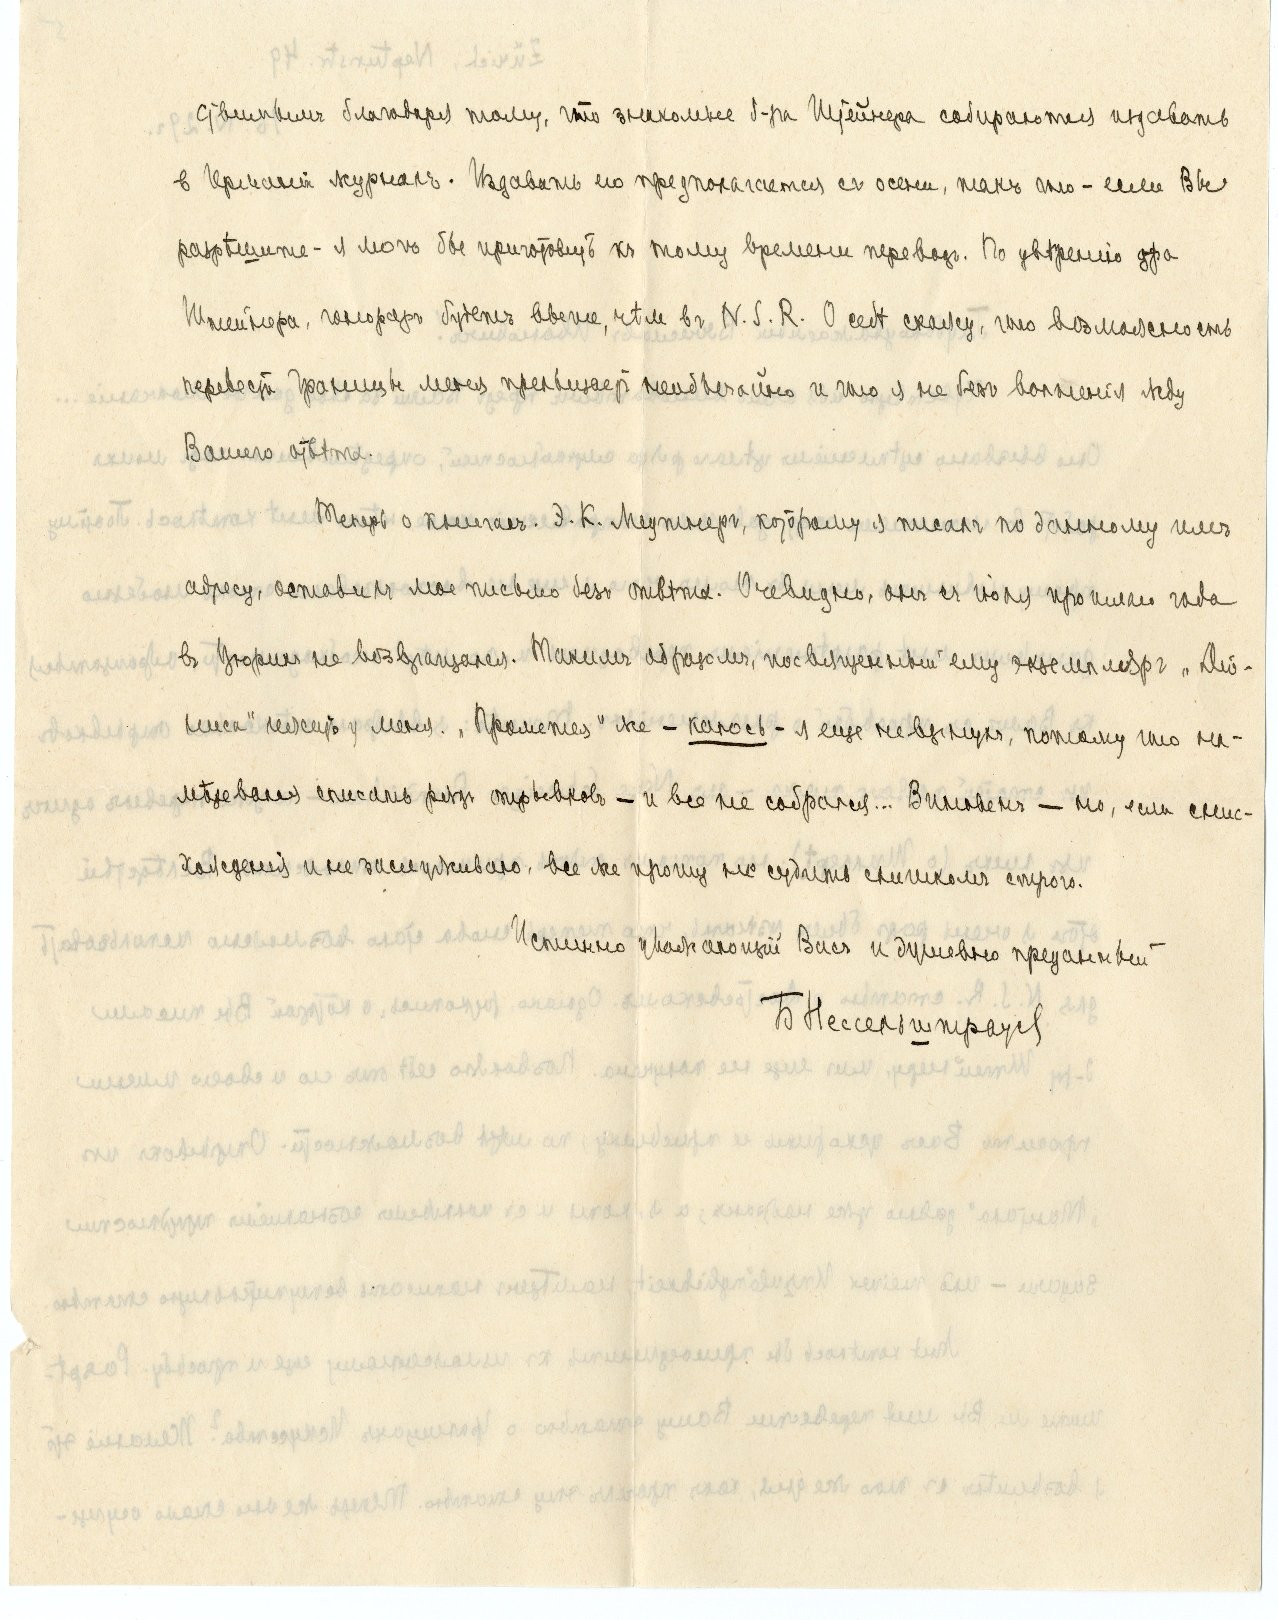 ствимымъ благодаря тому, что знакомые д-ра Штейнера собираются издавать
в Германіи журналъ. Издавать его предполагается съ осени, такъ что – если Вы
разрѣшите – я могъ бы приготовить къ тому времени переводъ. По увѣренію д-ра
Штейнера, гонораръ будетъ выше, чѣм въ N. S. R. О себѣ скажу, что возможность
перевести Границы меня прельщаетъ необычайно и что я не безъ волненія жду
Вашего отвѣта.
Теперь о книгахъ. Э. К. Метнеръ, которому я писалъ по данному имъ
адресу, оставилъ мое письмо безъ отвѣта. Очевидно, онъ съ іюля прошлаго года
въ Цюрихъ не возвращался. Такимъ образомъ, посвященный ему экземпляръ „Діо-
ниса" лежитъ у меня. „Прометея" же – каюсь – я еще не вернулъ, потому что на-
мѣревался списать рядъ отрывковъ – и все не собрался... Виновенъ – но, если снис-
хожденія и не заслуживаю, все же прошу не судить слишкомъ строго.
Истинно уважающій Васъ и душевно преданный
Б Нессельштраусъ